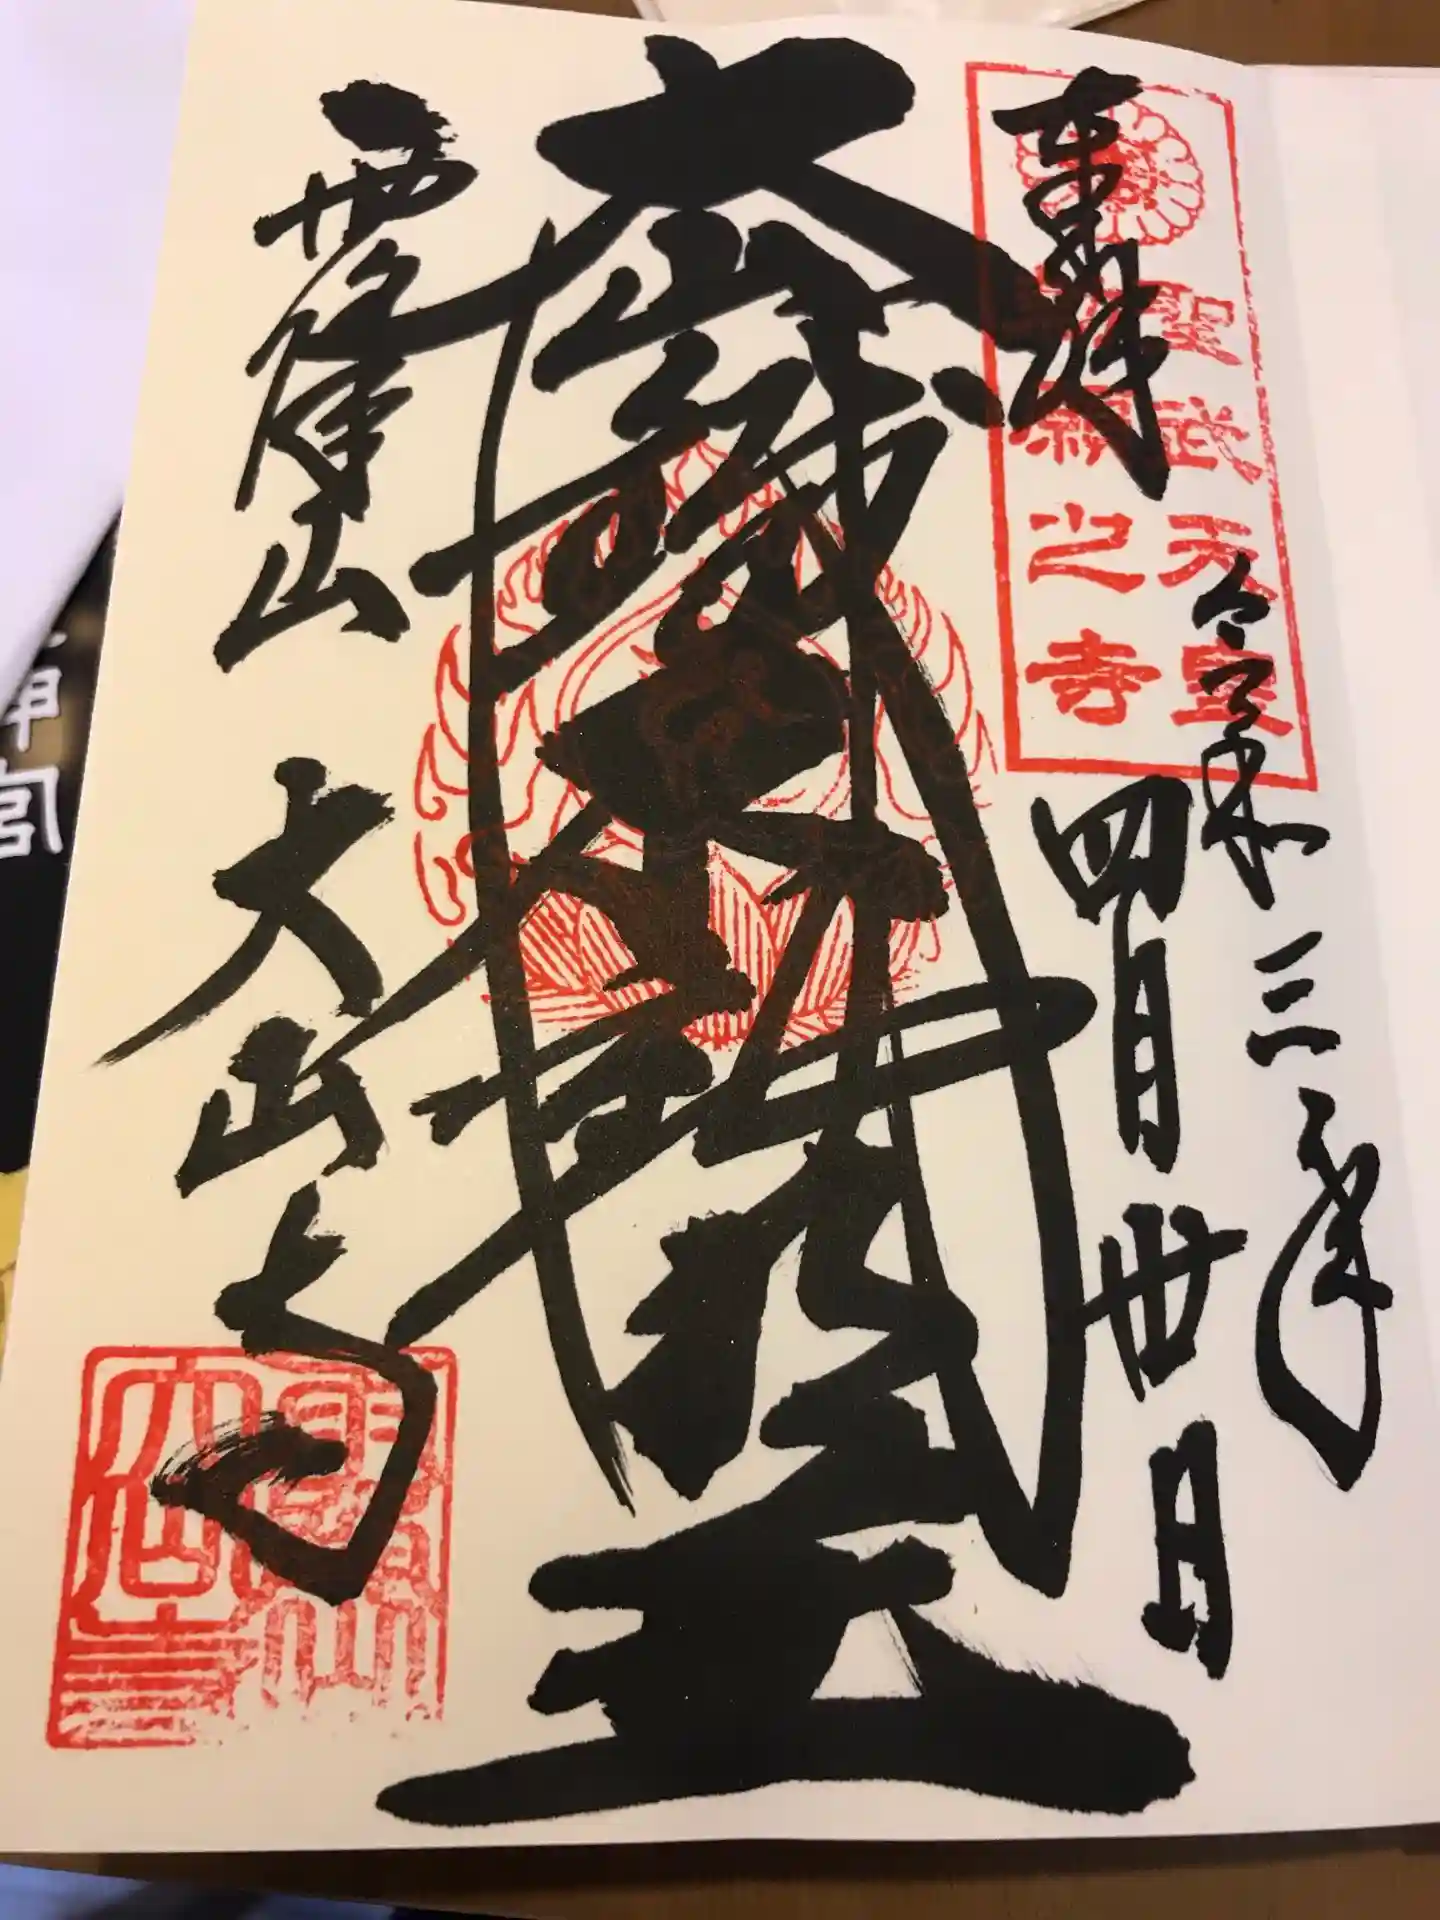 奉拝
聖武天皇
勅願之寺
令和三年
四月卅日
大山
不動明王
雨降山
大山寺
神宮